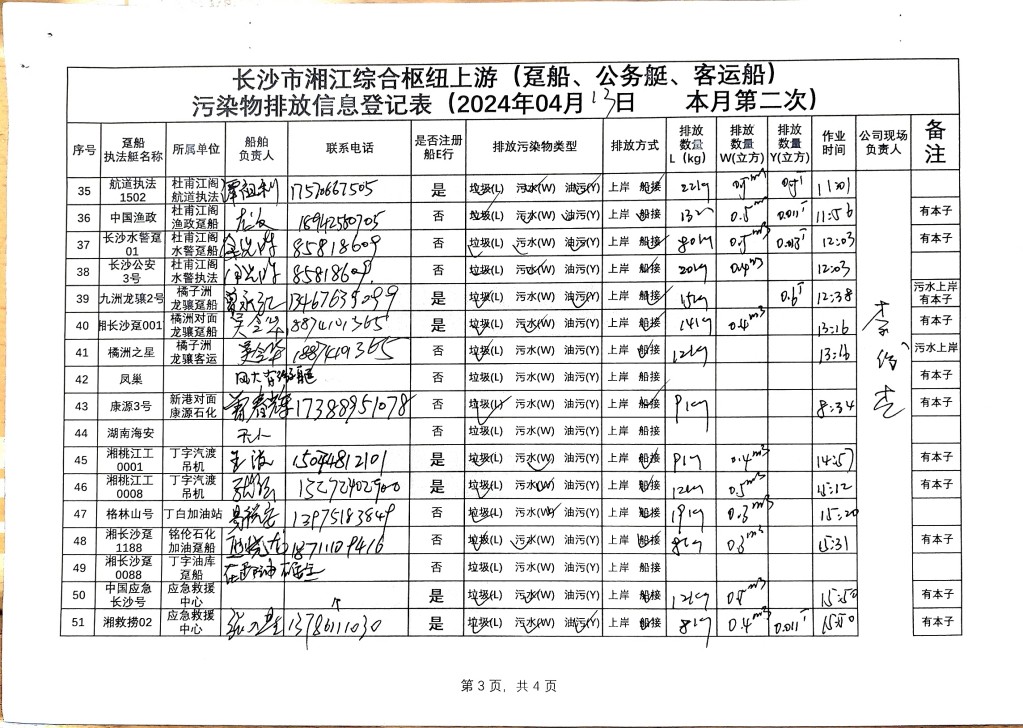 长沙市湘江综合枢纽上游（趸船、公务艇、客运船）
污染物排放信息登记表（2024年04月13日 本月第二次）
序号 趸船执法艇名称 所属单位 船舶负责人 联系电话 是否注册船E行 排放污染物类型 排放方式 排放数量L（kg） 排放数量W(立方) 排放数量Y(立方) 作业时间 公司现场负责人 备注
35 航道执法1502 杜甫江阁航道执法 17570667505 是 垃圾(L) 污水(W) 油污(Y) 上岸 船接 22kg
36 中国渔政 杜甫江阁渔政趸船 18942580705 否 垃圾(L) 污水(W) 油污(Y) 上岸 船接 0.5m³ 11:56 有本子
37 长沙水警趸01 杜甫江阁水警趸船 85818609 否 垃圾(L) 污水(W) 油污(Y) 上岸 船接 80kg 12:03 有本子
38 长沙公安3号 杜甫江阁水警执法 8581860 否 垃圾(L) 污水(W) 油污(Y) 上岸 船接 20kg 0.4m³ 12:03
39 九洲龙骧2号 橘子洲龙骧趸船 13467639099 是 垃圾(L) 污水(W) 油污(Y) 上岸 船接 15kg 12:38 污水上岸有本子
40 湘长沙趸001 橘洲对面龙骧趸船 18874101365 是 垃圾(L) 污水(W) 油污(Y) 上岸 船接 14kg 0.4m³ 13:16 有本子
41 橘洲之星 橘子洲龙骧客运 是 垃圾(L) 污水(W) 油污(Y) 上岸 船接 12kg 13:16 污水上岸
42 凤巢 否 垃圾(L) 污水(W) 油污(Y) 上岸 船接 有本子
43 康源3号 新港对面康源石化 17388951078 否 垃圾(L) 污水(W) 油污(Y) 上岸 船接 9kg 8:34 有本子
44 湖南海安 无人 否 垃圾(L) 污水(W) 油污(Y) 上岸 船接
45 湘桃江工0001 丁字汽渡吊机 15084812101 是 垃圾(L) 污水(W) 油污(Y) 上岸 船接 9kg 0.4m³ 14:57 有本子
46 湘桃江工0008 丁字汽渡吊机 是 垃圾(L) 污水(W) 油污(Y) 上岸 船接 12kg 0.5m³ 15:12 有本子
47 格林山号 丁白加油站 13975183849 是 垃圾(L) 污水(W) 油污(Y) 上岸 船接 19kg 0.3m³ 15:20 有本子
48 湘长沙趸1188 铭伦石化加油趸船 18711109416 是 垃圾(L) 污水(W) 油污(Y) 上岸 船接 8kg 0.3m³ 15:31 有本子
49 湘长沙趸0088 丁字油库趸船 否 垃圾(L) 污水(W) 油污(Y) 上岸 船接
50 中国应急长沙号 应急救援中心 是 垃圾(L) 污水(W) 油污(Y) 上岸 船接 12kg 15:50 有本子
51 湘救捞02 应急救援中心 13786111030 是 垃圾(L) 污水(W) 油污(Y) 上岸 船接 8kg 0.4m³ 15:50 有本子
第 3 页，共 4 页